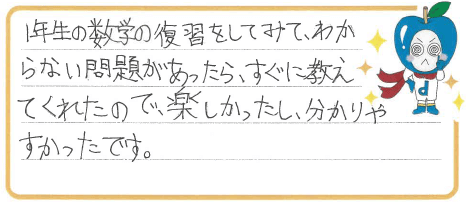 1年生の数学の復習をしてみて、わか
らない問題があったら、すぐに教え
てくれたので、楽しかったし、分かりや
すかったです。
d